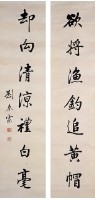 欲将漁釣追黄帽
却向清涼禮白毫
劉春霖